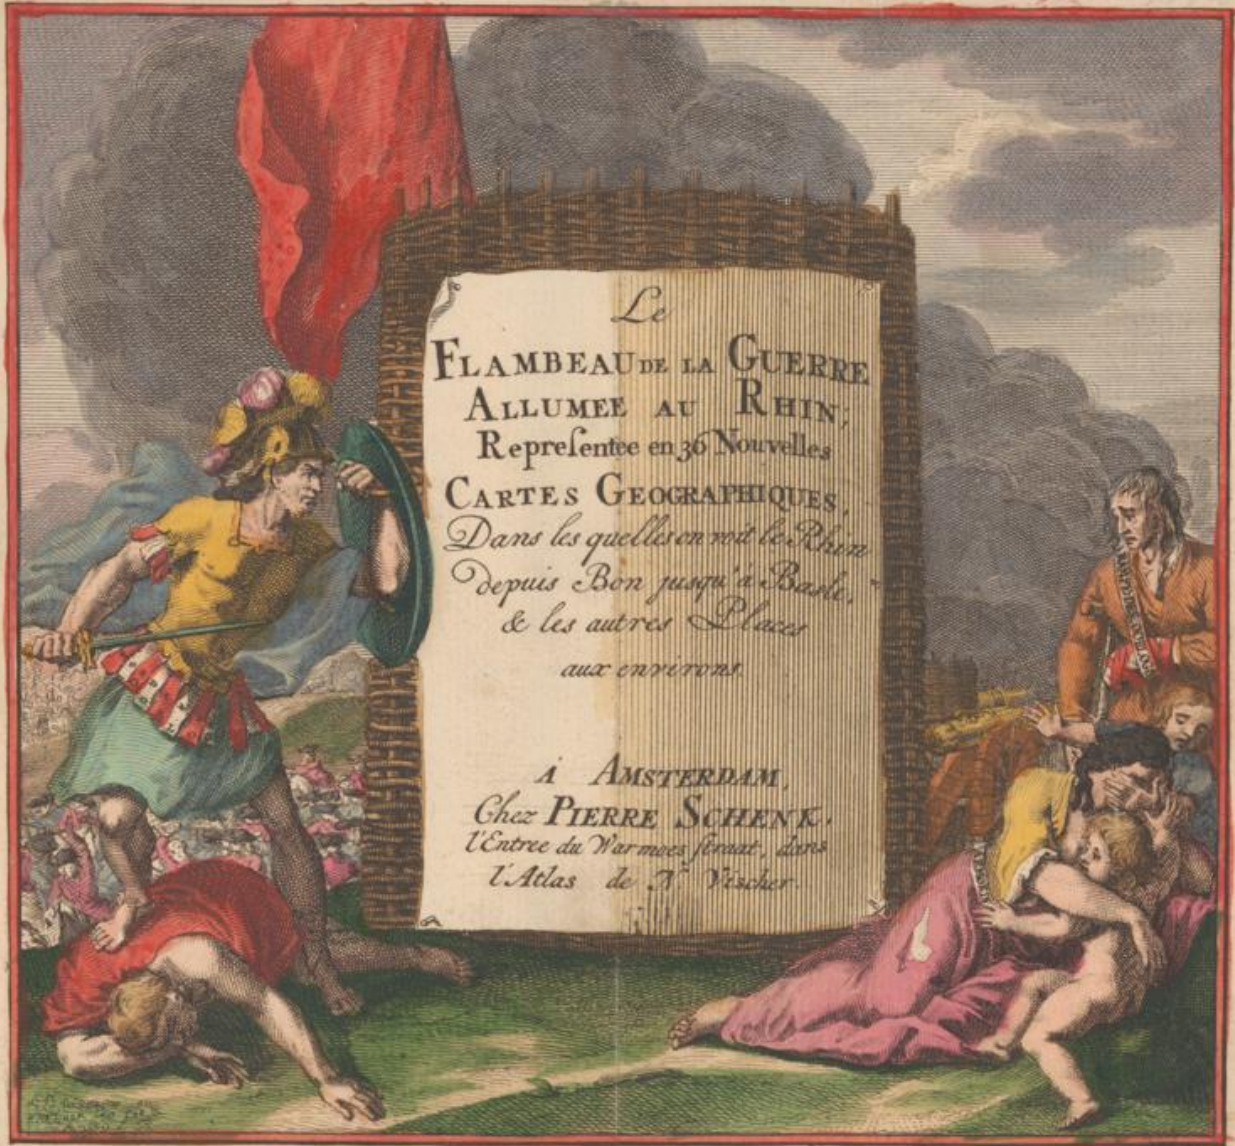 Le
FLAMBEAU DE LA GUERRE
ALLUMEE AU RHIN;
Repreſentee en 36 Nouvelles
CARTES GEOGRAPHIQUES,
Dans les quelles on voit le Rhin
depuis Bon jusqu'à Basle,
& les autres Places
aux environs.
À AMSTERDAM,
Chez PIERRE SCHENK.
l'Entree du Warmoes ſtraat, dans
l'Atlas de N Visscher.